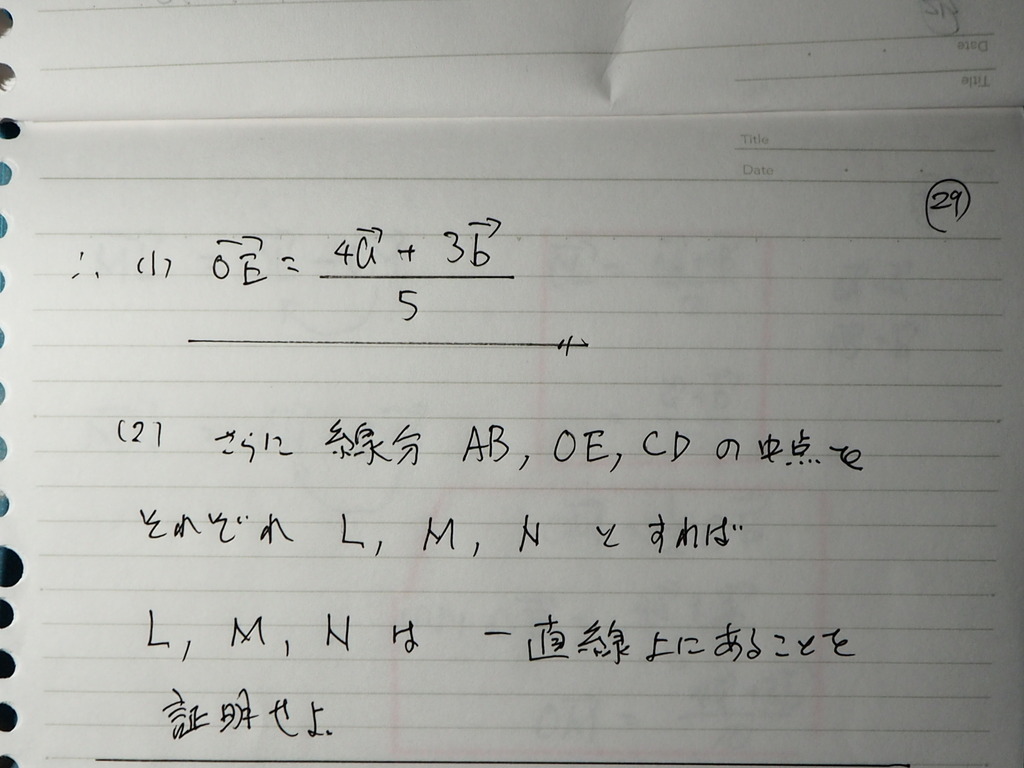 Title
Date
Title
Date
29
∴ (1) OE = 4a + 3b
5
(2) さらに 線分 AB, OE, CD の中点を
それぞれ L, M, N とすれば
L, M, N は 一直線上にあることを
証明せよ.